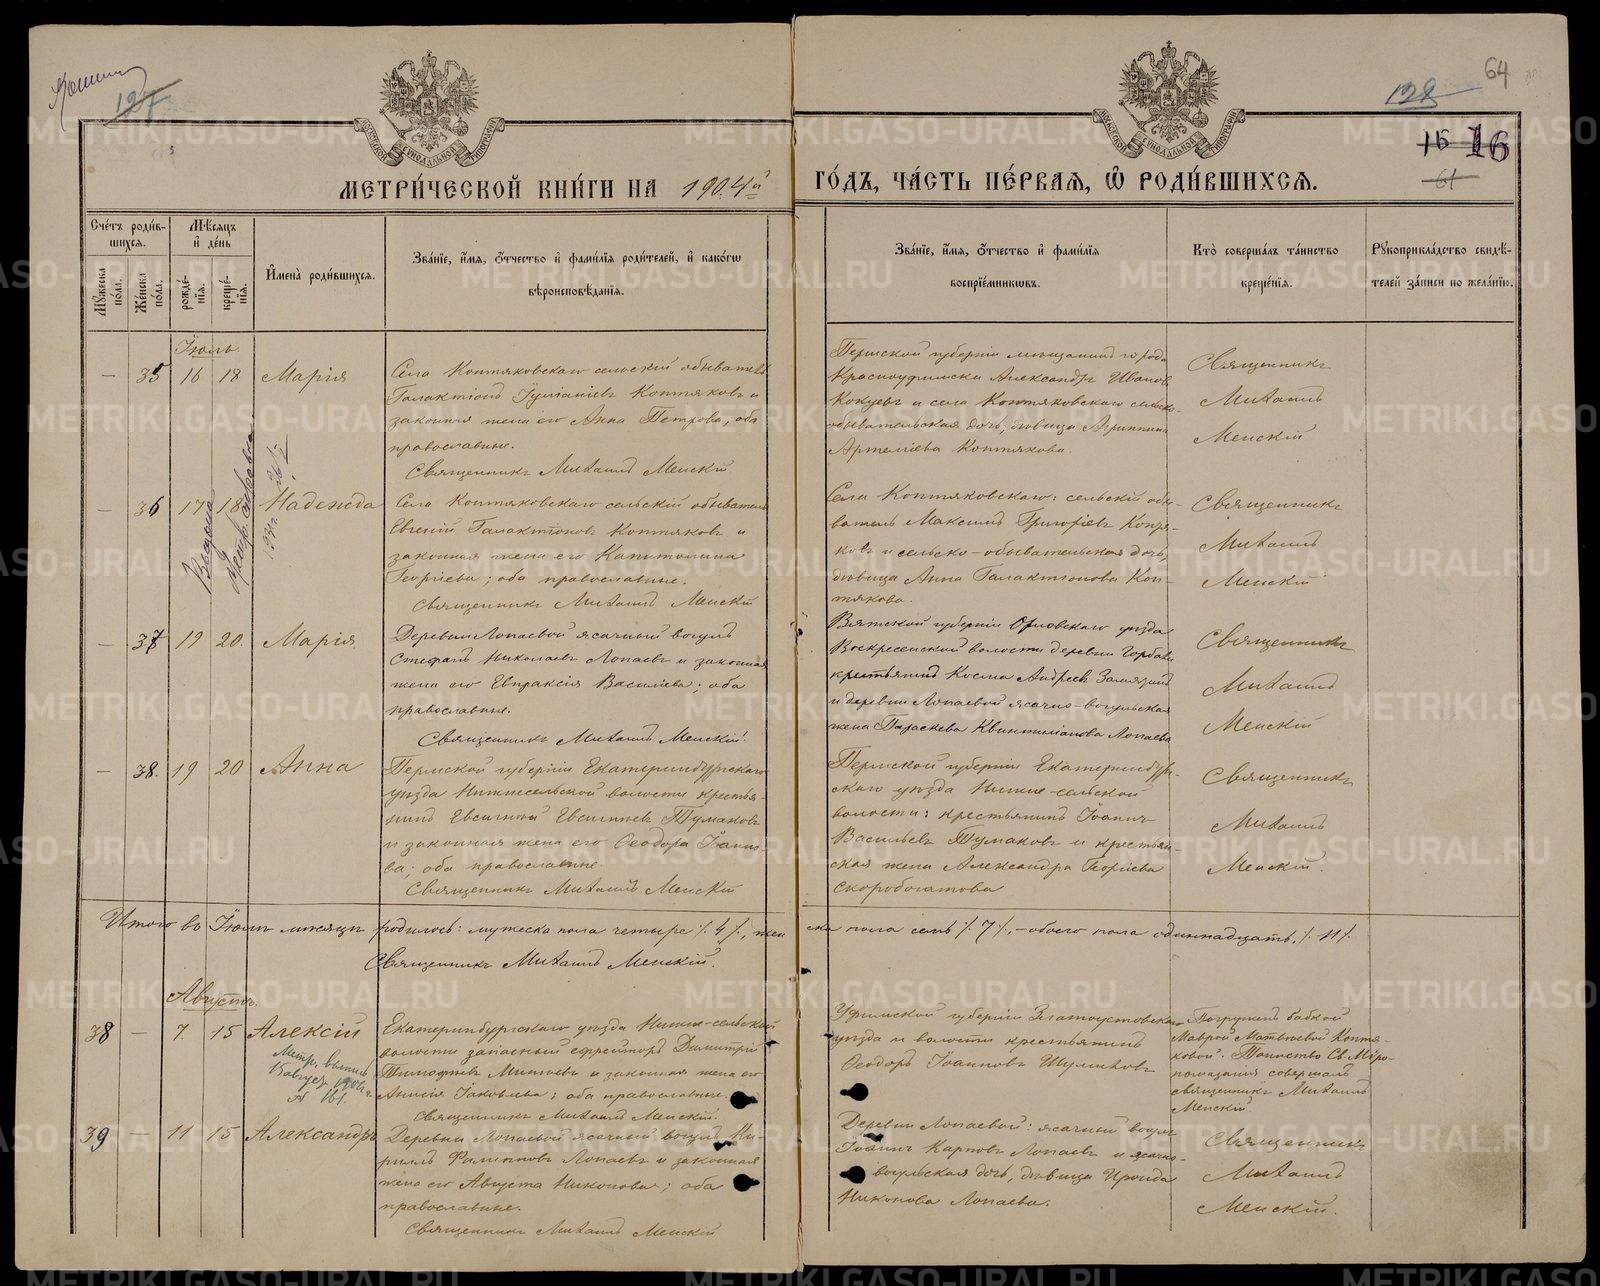 127
128
64
16 16
61
МЕТРИ́ЧЕСКОЙ КНИ́ГИ НА 1904й ГО́ДЪ, ЧА́СТЬ ПЕ́РВАѦ, Ѡ҆ РОДИ́ВШИХСѦ.
Сче́тъ роди́в-
шихсѧ.
Мꙋ́жеска по́ла.
Же́нска по́ла.
Мѣ́сѧцъ и҆ де́нь
рожде́-
нїѧ.
креще́-
нїѧ.
И҆мена̀ роди́вшихсѧ.
Зва́нїе, и҆́мѧ, ѻ҆́тчество и҆ фамѝлїѧ роди́телей, и҆ како́гѡ
вѣроисповѣ́данїѧ.
Зва́нїе, и҆́мѧ, ѻ҆́тчество и҆ фамѝлїѧ
воспрїе́мникѡвъ.
Кто̀ соверша́лъ та́инство
креще́нїѧ.
Рꙋкоприкла́дство свидѣ́-
телей за́писи по жела́нїю.
Іюль.
— 35 16 18 Марія
Села Коптяковскаго сельскій обыватель
Галактіонъ Іуліаніевъ Коптяковъ и
законная жена его Анна Петрова, оба
православные.
Священникъ Михаилъ Менскій
Пермской губерніи мѣщанинъ города
Красноуфимска Александръ Ивановъ
Кокуевъ и села Коптяковскаго сельско-
обывательская дочь, дѣвица Агриппина
Артеміева Коптякова.
Священникъ
Михаилъ
Менскій
— 36 17 18 Надежда
Села Коптяковскаго сельскій обыватель
Евгеній Галактіоновъ Коптяковъ и
законная жена его Капитолина
Георгіева; оба православные.
Священникъ Михаилъ Менскій
Села Коптяковскаго: сельскій обы-
ватель Максимъ Григоріевъ Коптя-
ковъ и сельско-обывательская дочь,
дѣвица Анна Галактіонова Коп-
тякова.
Священникъ
Михаилъ
Менскій
— 37 19 20. Марія
Деревни Лопаевой ясачный вогулъ
Стефанъ Николаевъ Лопаевъ и законная
жена его Евпраксія Василіева; оба
православные.
Священникъ Михаилъ Менскій.
Вятской губерніи Орловскаго уѣзда
Воскресенской волости деревни
крестьянинъ Косма Андреевъ
и деревни Лопаевой ясачно-вогульская
жена Параскева Квинтиліанова Лопаева
Священникъ
Михаилъ
Менскій
— 38. 19 20 Анна
Пермской губерніи Екатеринбургскаго
уѣзда Нижнесельской волости крестья-
нинъ Евсигній Евсигніевъ Тумаковъ
и законная жена его Ѳеодора Іоанно-
ва; оба православные
Священникъ Михаилъ Менскій
Пермской губерніи Екатеринбург-
скаго уѣзда Нижне-сельской
волости: крестьянинъ Іоаннъ
Васильевъ Тумаковъ и крестьян-
ская жена Александра Георгіева
Скоробогатова
Священникъ
Михаилъ
Менскій.
Итого въ Іюлѣ мѣсяцѣ родилось: мужеска пола четыре /. 4 /., жен ска пола семь /. 7 /., – обоего пола одиннадцать. /. 11 /.
Священникъ Михаилъ Менскій.
Августъ.
38 — 7. 15 Алексій
Метр. выпись
15 август 1904 г.
№ 161.
Екатеринбургскаго уѣзда Нижне-сельской
волости запасный ефрейторъ Димитрій
Тимофеевъ и законная жена его
Анисія Іаковлева; оба православные.
Священникъ Михаилъ Менскій.
Уфимской губерніи Златоустовскаго
уѣзда и волости крестьянинъ
Ѳеодоръ Іоанновъ Шумиховъ
Погруженъ бабкой
Маврой Матѳеевой Коптя-
ковой. Таинство Св. Мѵро-
помазанія совершалъ
священникъ Михаилъ
Менскій
39 — 11 15 Александръ
Деревни Лопаевой ясачный вогулъ Ки-
риллъ Филипповъ Лопаевъ и законная
жена его Августа Никонова; оба
православные.
Священникъ Михаилъ Менскій
Деревни Лопаевой: ясачный вогулъ
Іоаннъ Карповъ Лопаевъ и ясачно-
вогульская дочь, дѣвица Ираида
Никонова Лопаева.
Священникъ
Михаилъ
Менскій.
METRIKI.GASO-URAL.RU